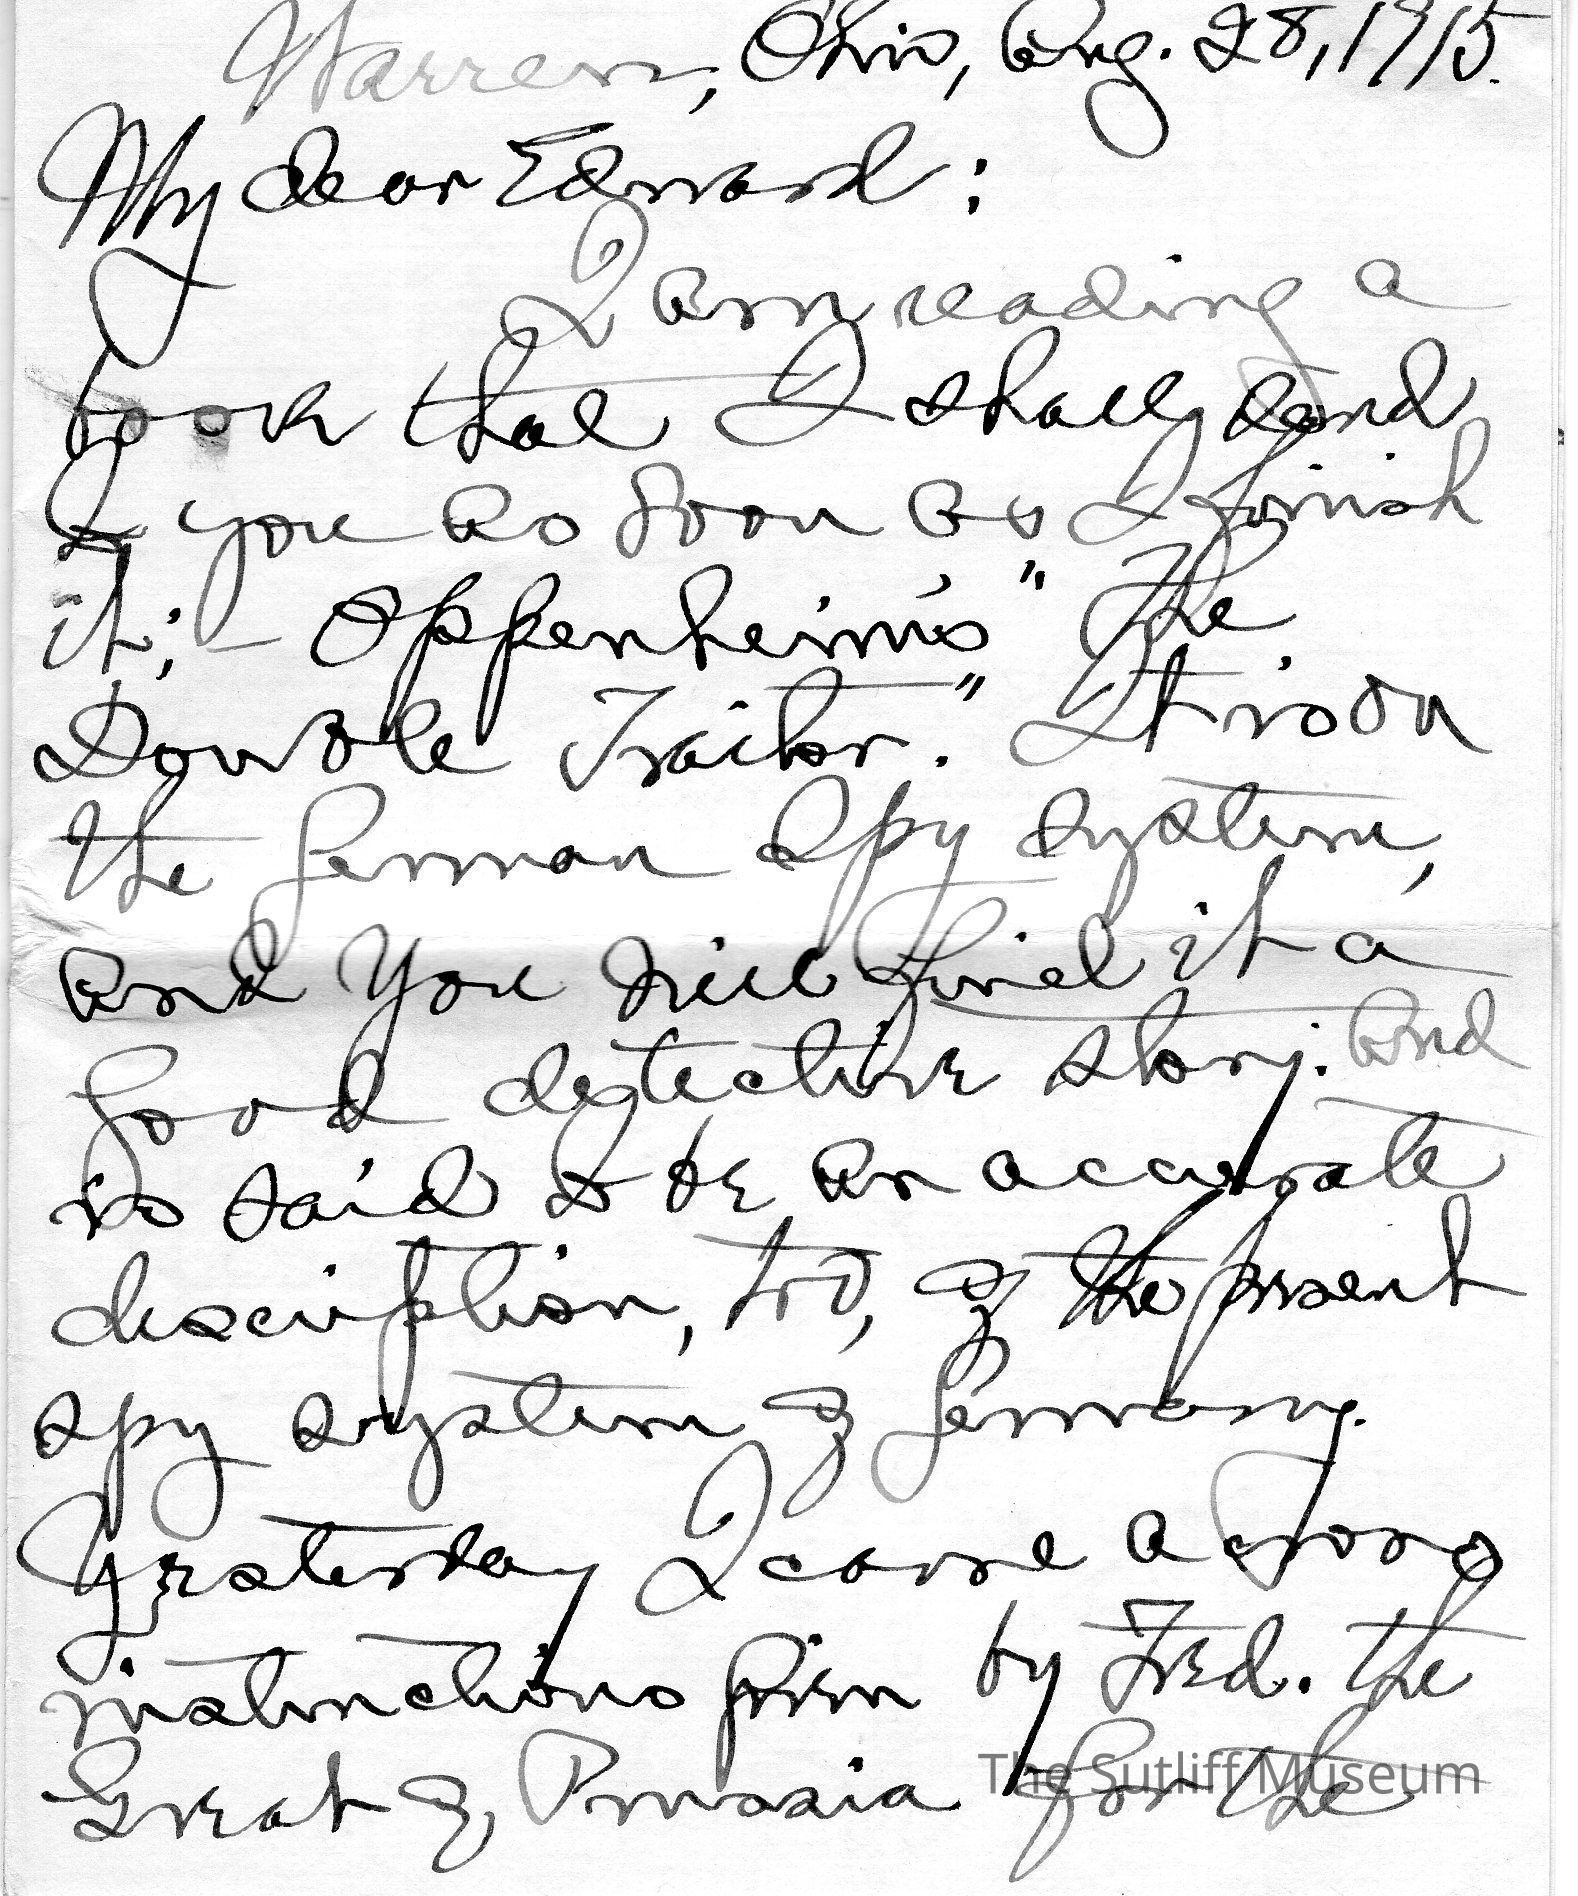 Warren, Ohio, Aug. 28, 1915.
My dear Edward:
I am reading a
book that I shall send
to you as soon as I finish
it; - Oppenheim's "The
Double Traitor." It is on
the German spy system,
and you will find it a
good detective story. And
is said to be an accurate
description, too, of the present
spy system of Germany.
Yesterday I came across
instructions given by Fred. the
Great of Prussia for the
The Sutliff Museum